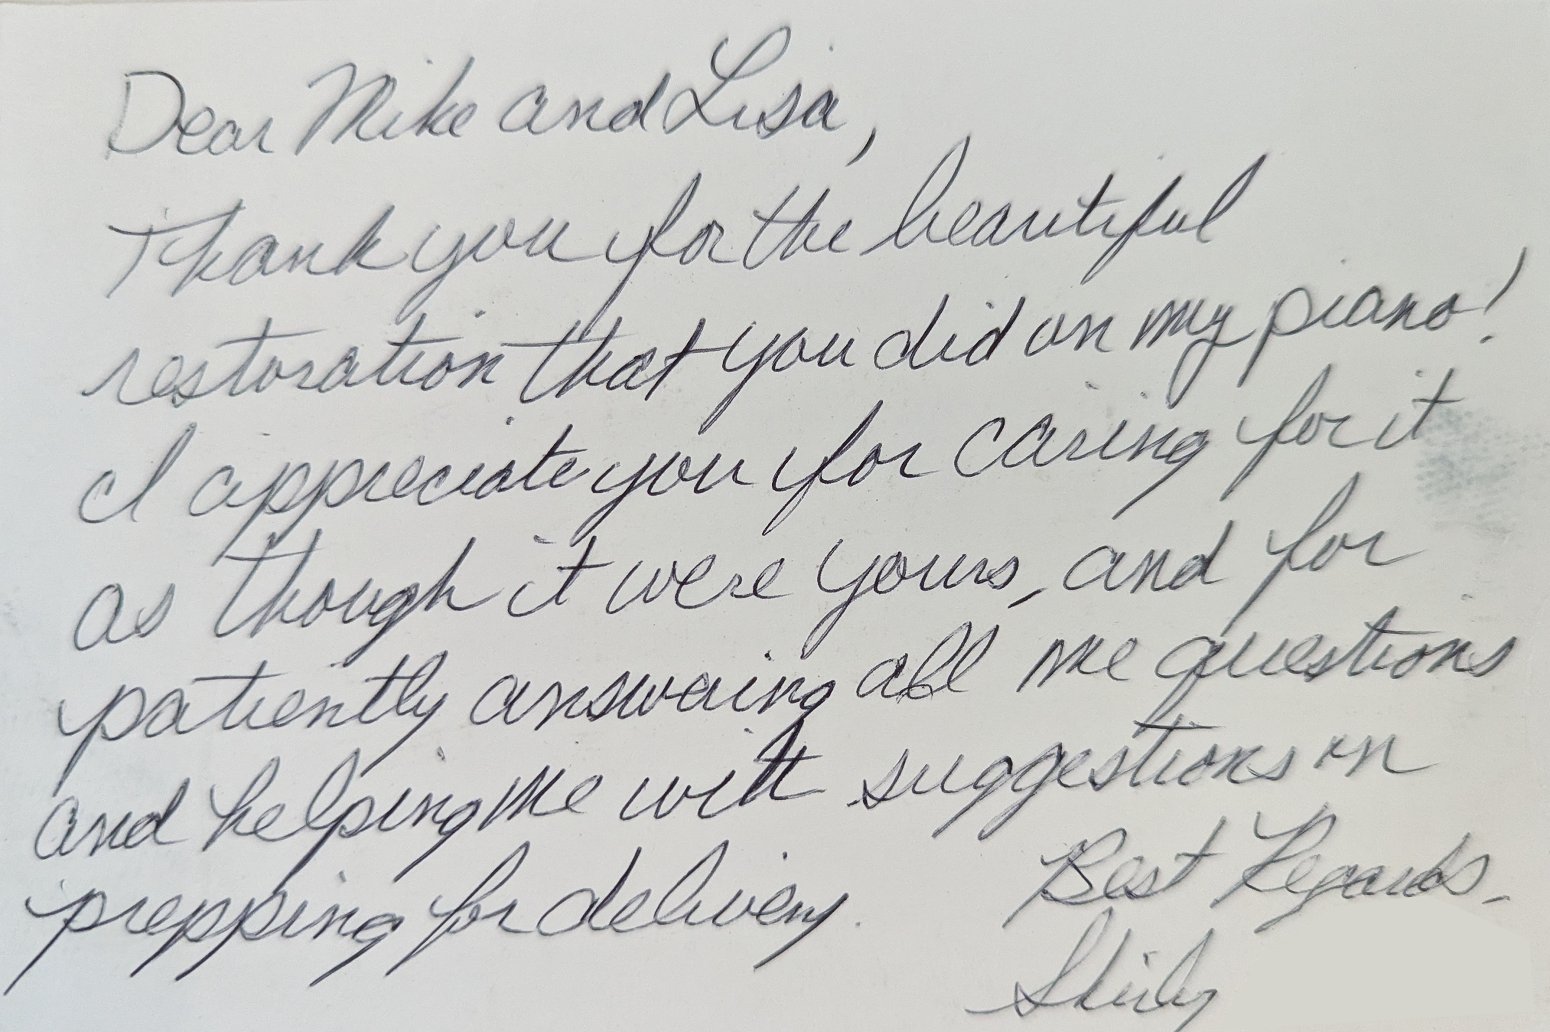 Dear Mike and Lisa,
Thank you for the beautiful
restoration that you did on my piano!
I appreciate you for caring for it
as though it were yours, and for
patiently answering all me questions
and helping me with suggestions on
prepping for delivery.
Best Regards -
Shirley